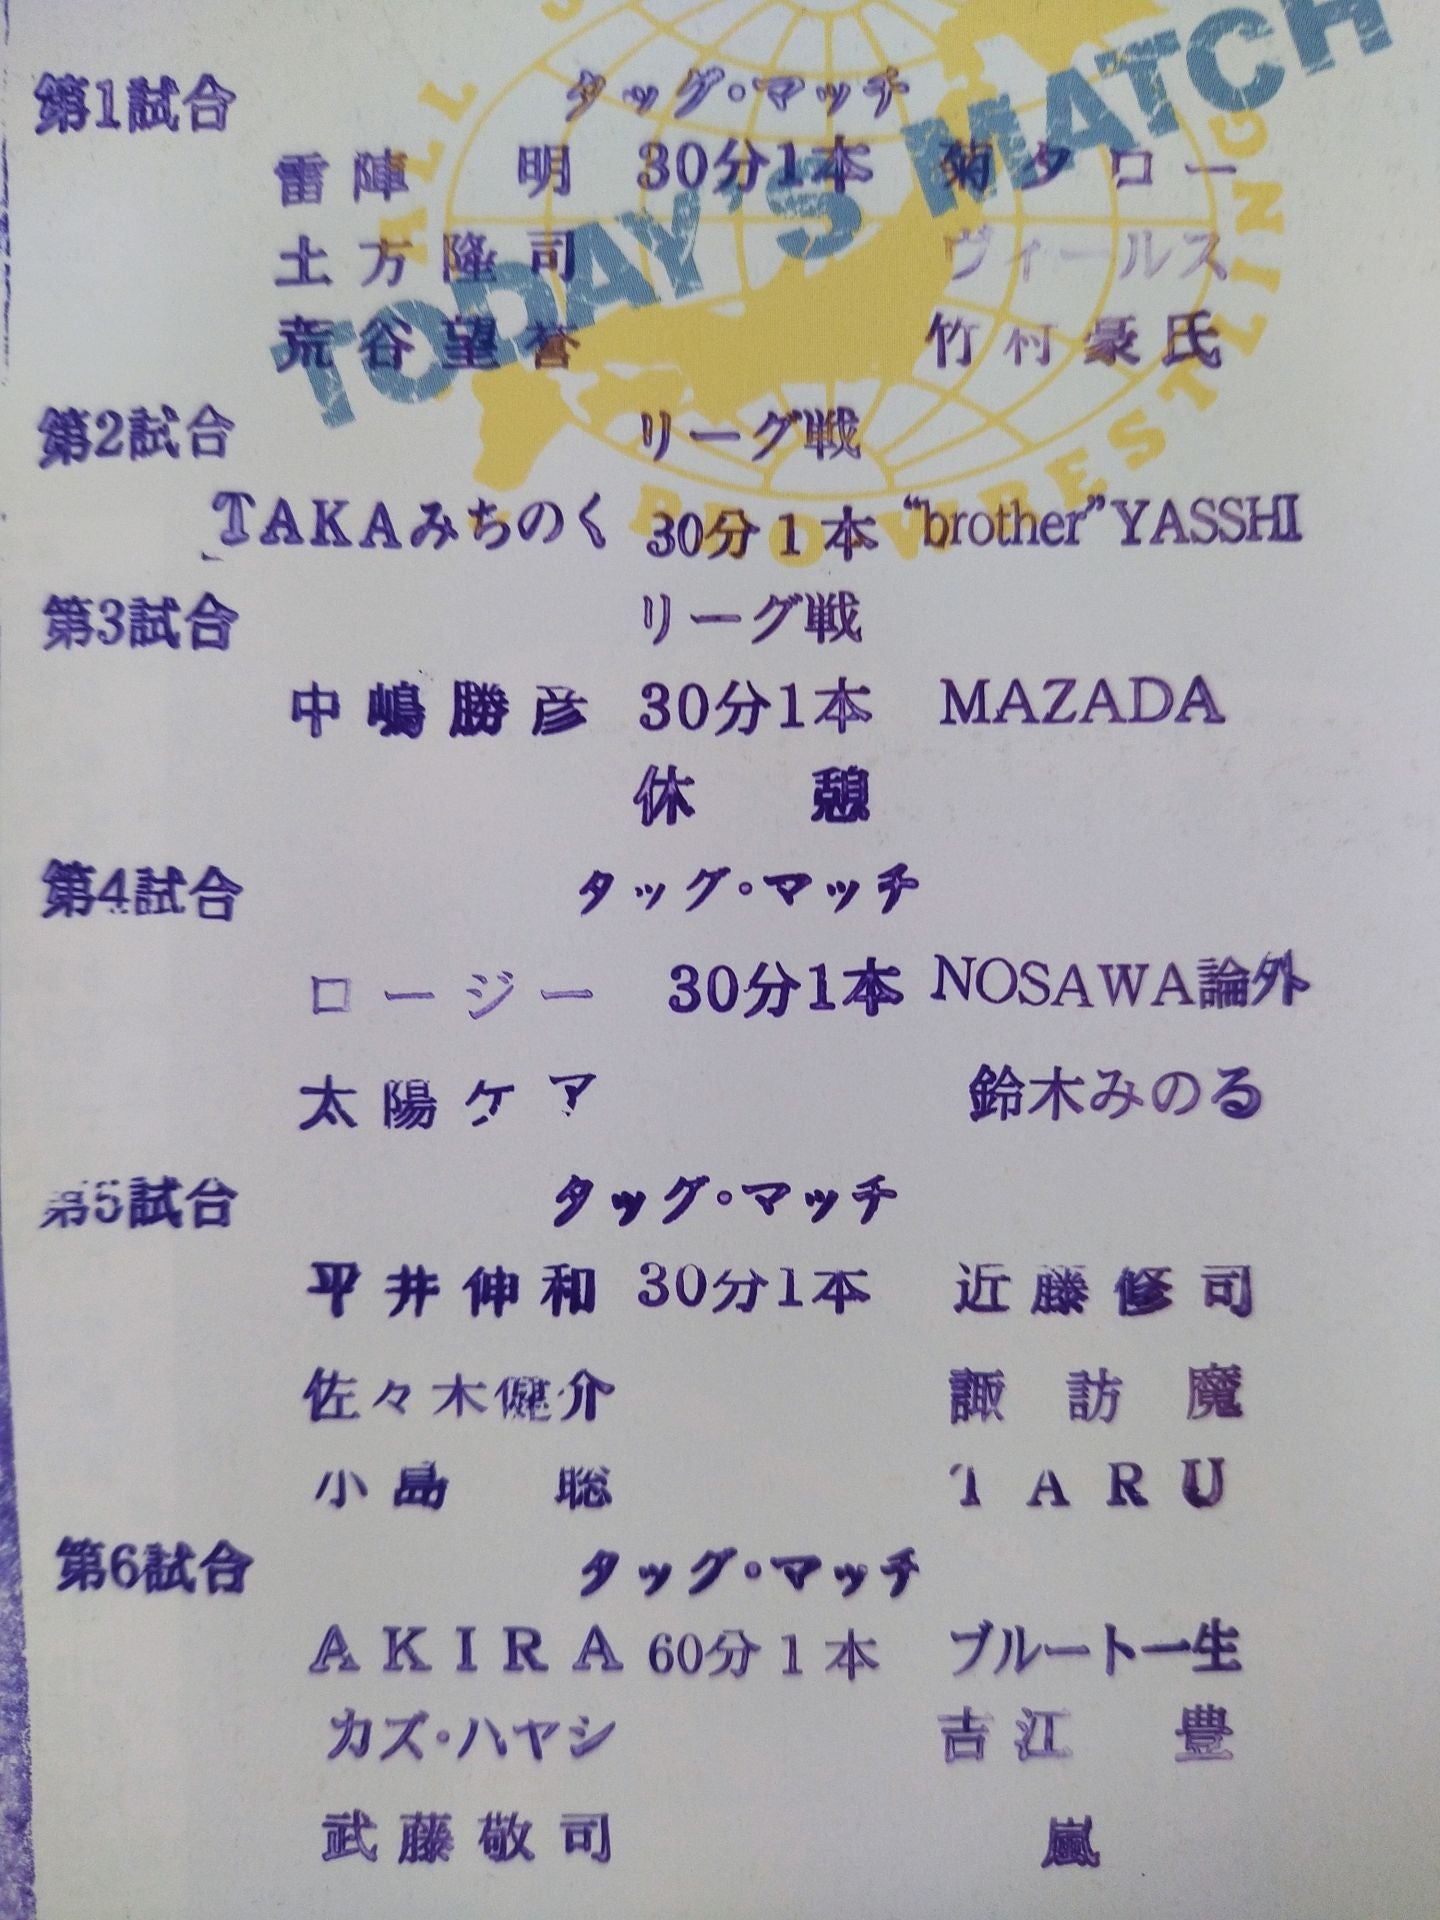 ALL JAPAN PRO WRESTLING
TODAY'S MATCH
第1試合 タッグ・マッチ
雷陣 明 30分1本 菊タロー
土方隆司 ヴィールス
荒谷望誉 竹村豪氏
第2試合 リーグ戦
TAKAみちのく 30分1本 “brother”YASSHI
第3試合 リーグ戦
中嶋勝彦 30分1本 MAZADA
休 憩
第4試合 タッグ・マッチ
ロージー 30分1本 NOSAWA論外
太陽ケア 鈴木みのる
第5試合 タッグ・マッチ
平井伸和 30分1本 近藤修司
佐々木健介 諏訪魔
小島 聡 TARU
第6試合 タッグ・マッチ
AKIRA 60分1本 ブルート一生
カズ・ハヤシ 吉江 豊
武藤敬司 嵐